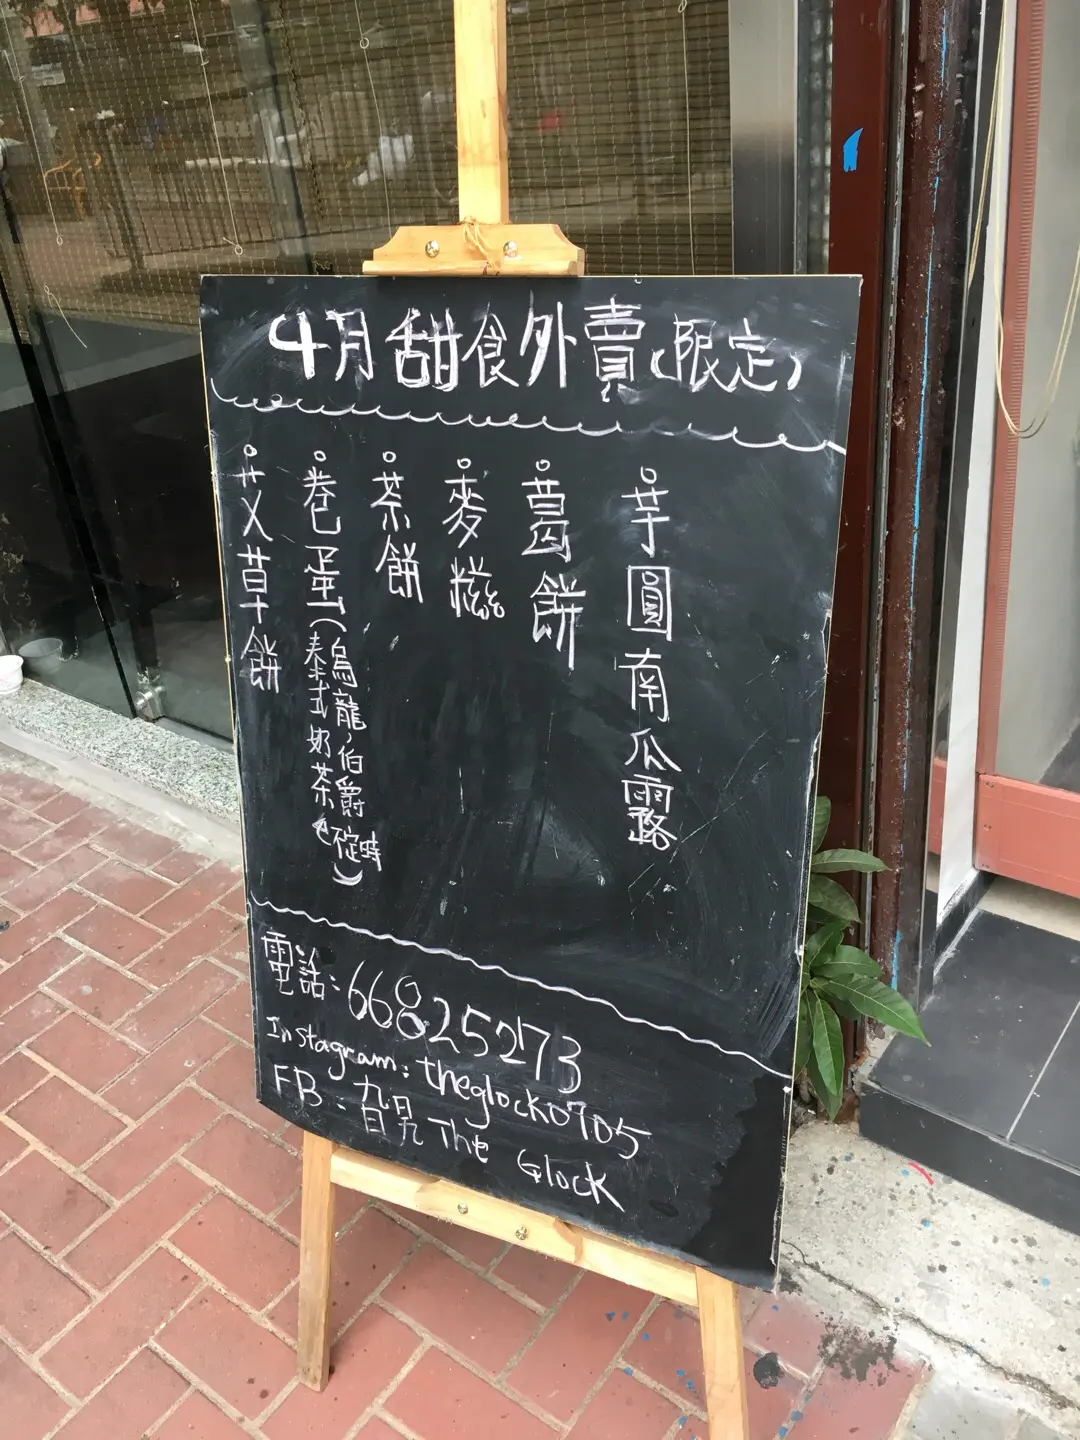 4月甜食外賣(限定)
芋圓南瓜露
葛餅
麥糍
茶餅
卷蛋(烏龍,伯爵
泰式奶茶
艾草餅
電話:66825273
Instagram:theglock0705
FB:旮旯 The Glock